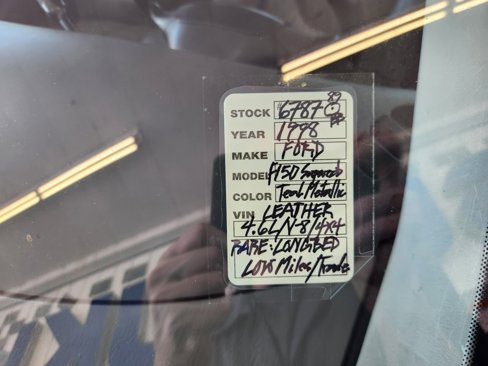 89
STOCK 6787
YEAR 1998
MAKE FORD
MODEL F150 Supercab
COLOR Teal Metallic
VIN LEATHER
4.6L/V-8/4x4
RARE: LONGBED
LOW Miles/Trade